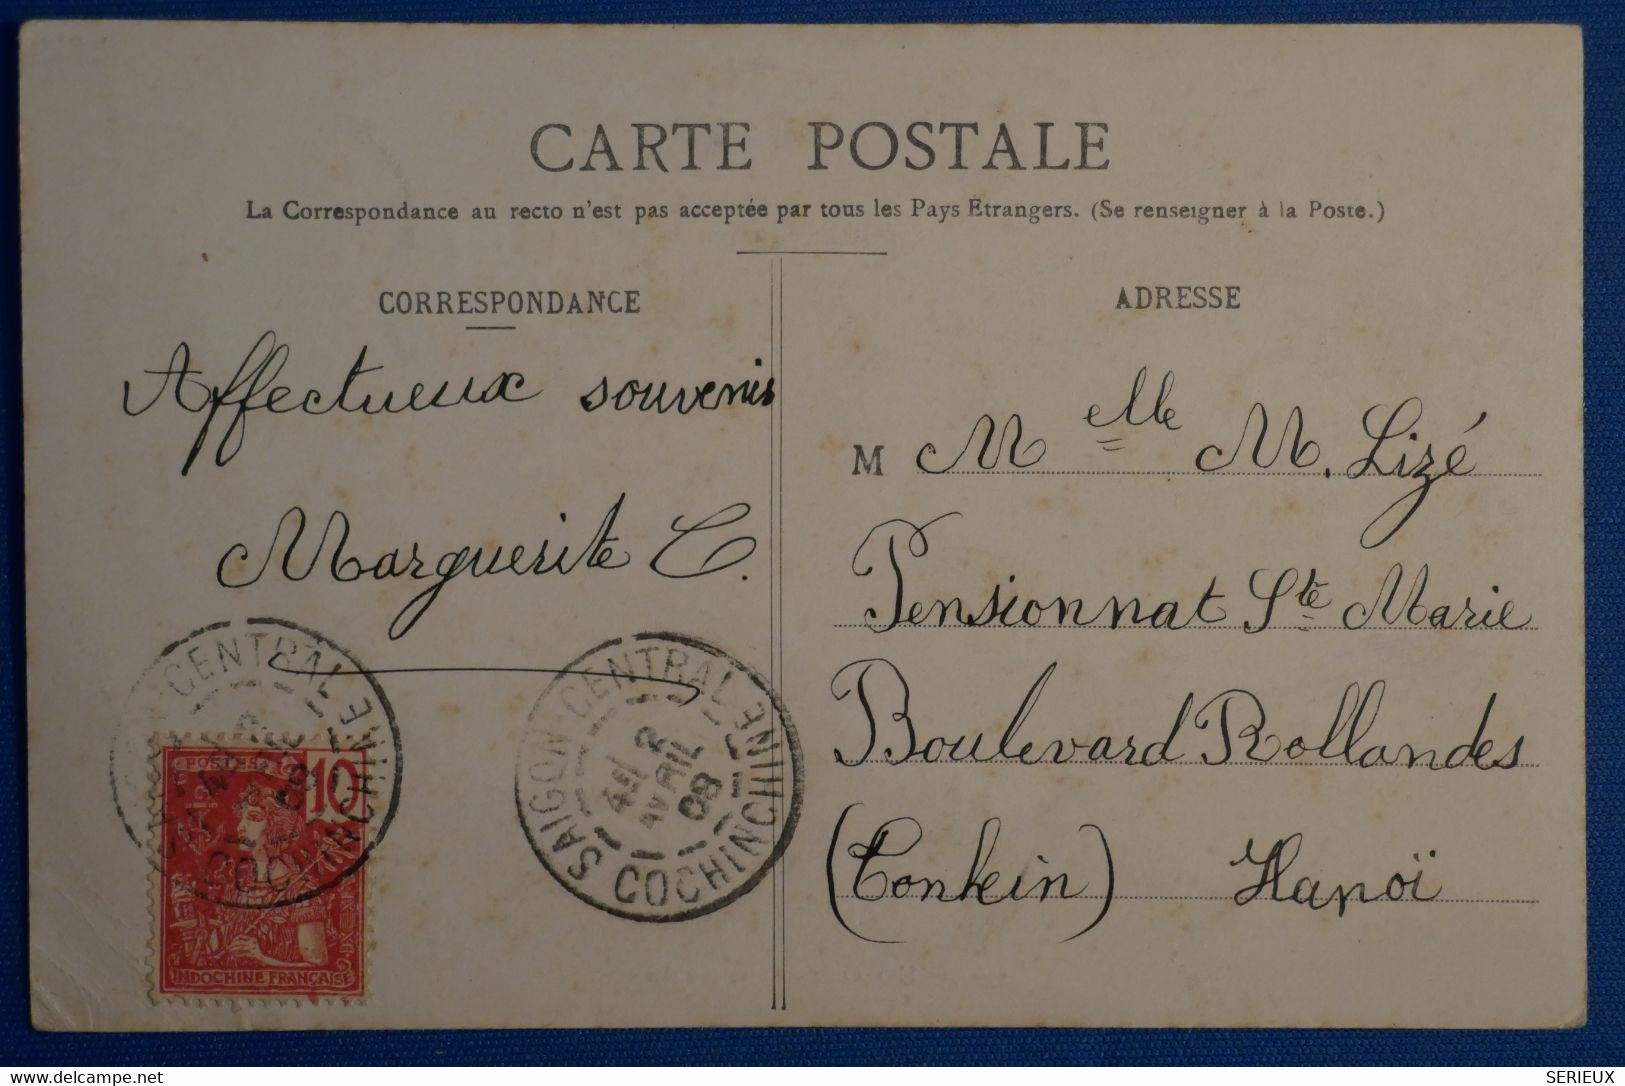 CARTE POSTALE
La Correspondance au recto n'est pas acceptée par tous les Pays Étrangers. (Se renseigner à la Poste.)
CORRESPONDANCE
Affectueux souvenir
Marguerite C.
ADRESSE
M Melle M. Lizé
Pensionnat Ste Marie
Boulevard Rollandes
(Tonkin) Hanoï
CENTRAL
COCHINCHINE
POSTES
10
INDOCHINE FRANÇAISE
SAIGON-CENTRAL
2
AVRIL
08
COCHINCHINE
https://www.delcampe.net
SERIEUX